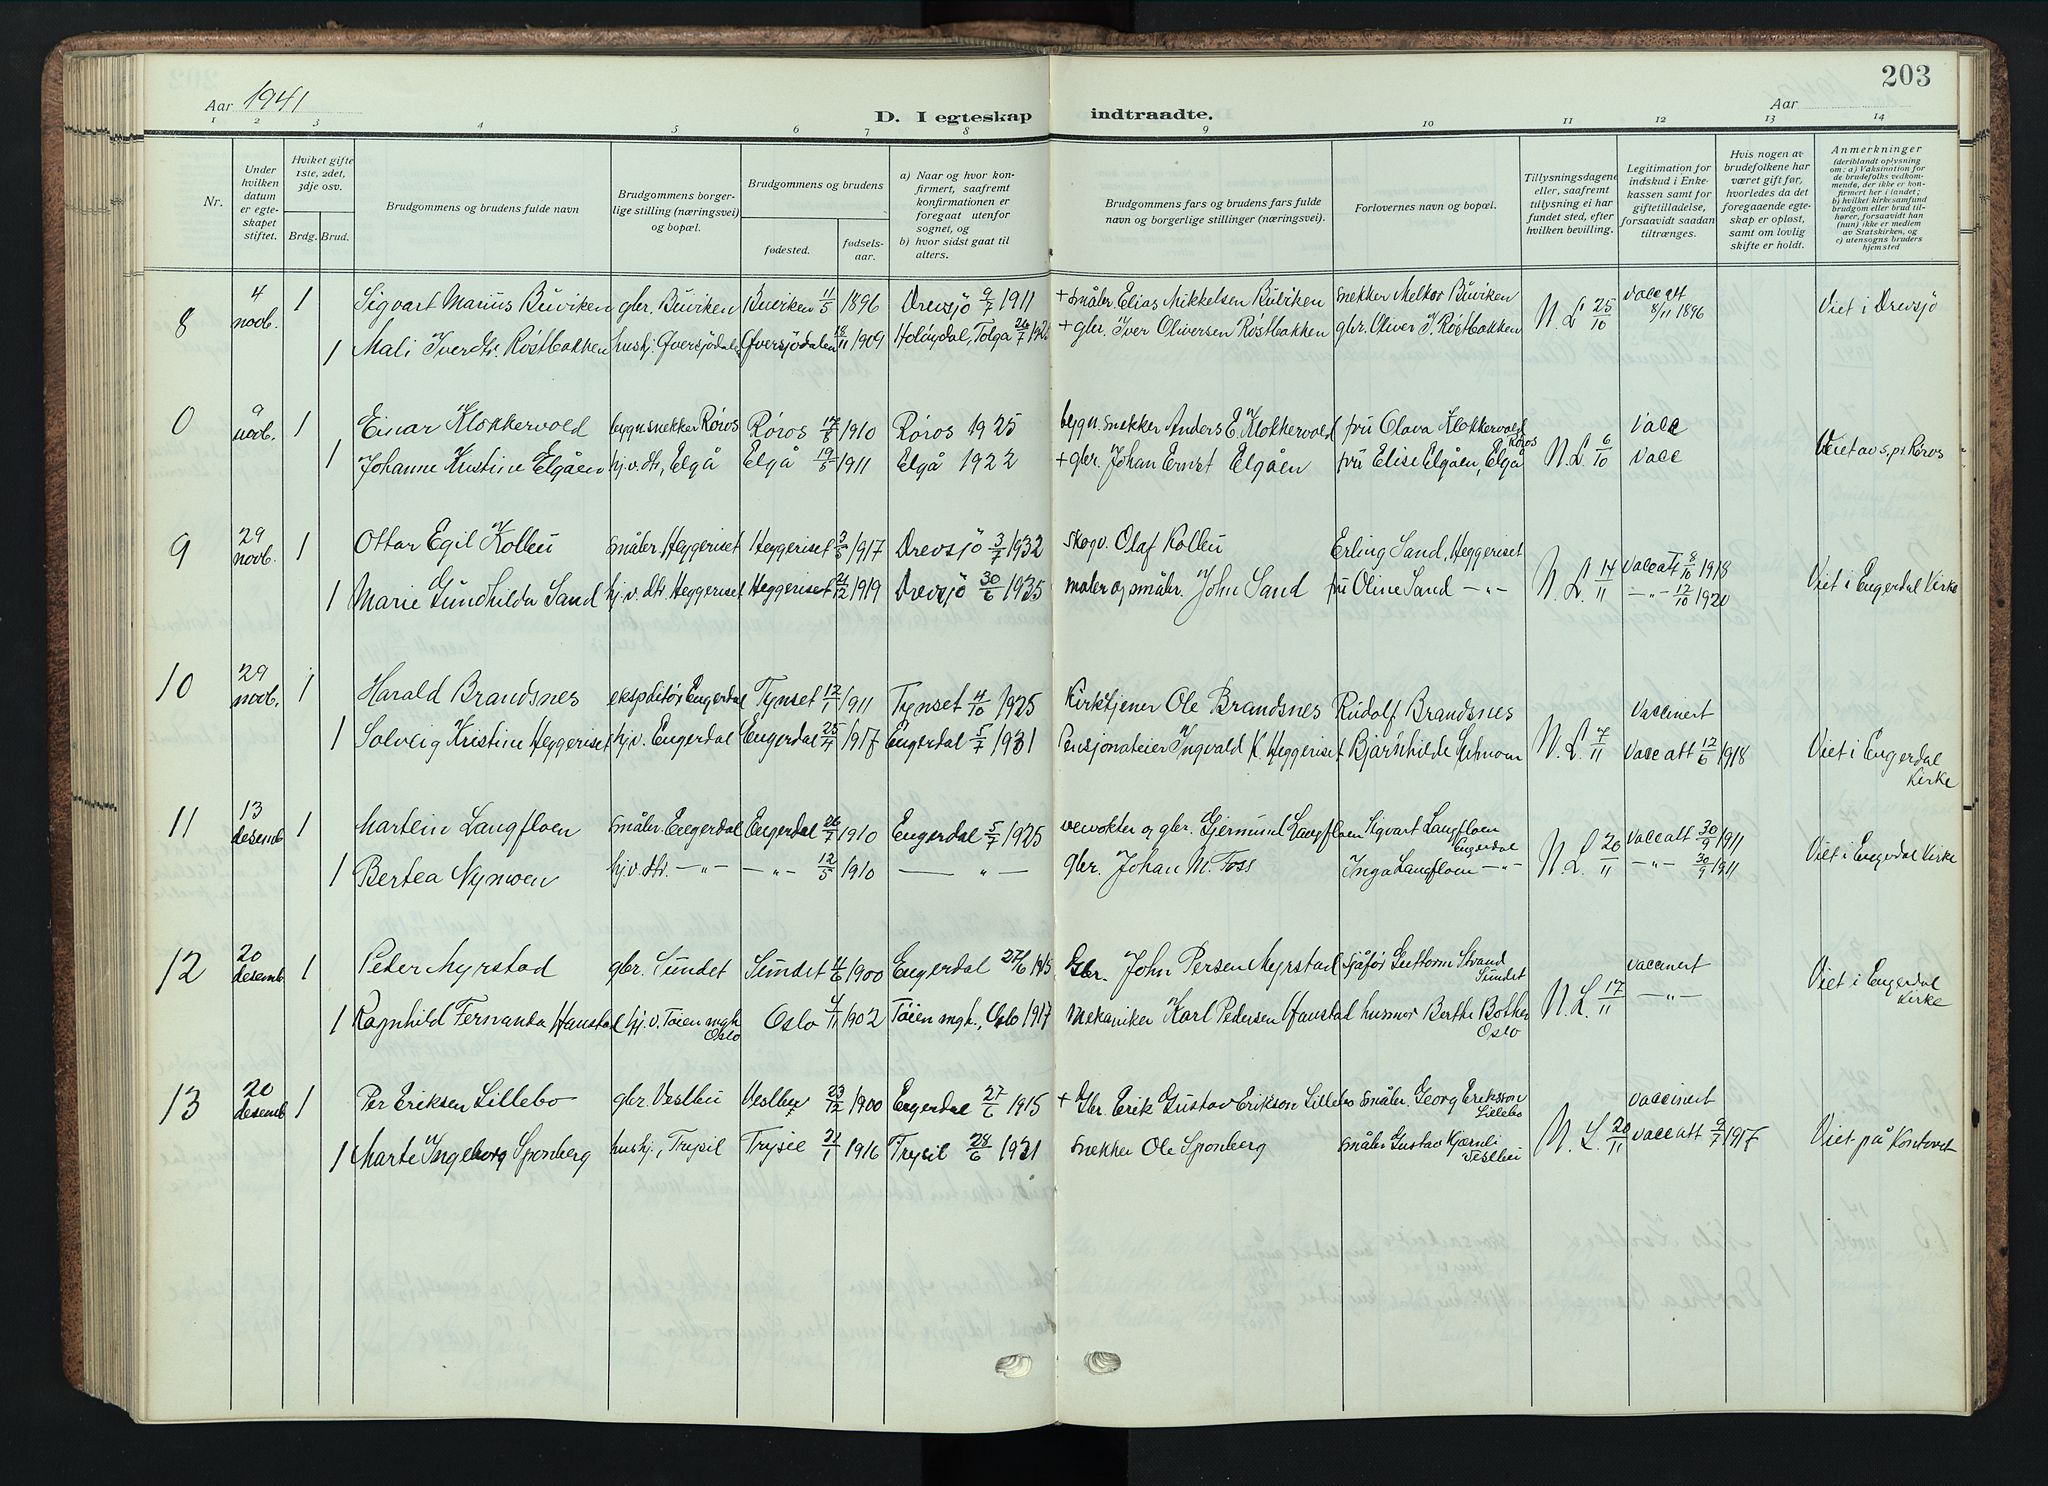 203
Aar 1941
D. I egteskap indtraadte.
Aar
1 2 3 4 5 6 7 8 9 10 11 12 13 14
Nr.
Under hvilken datum er egteskapet stiftet.
Hviket gifte 1ste, 2det, 3dje osv.
Brdg. Brud.
Brudgommens og brudens fulde navn
Brudgommens borgerlige stilling (næringsvei) og bopæl.
Brudgommens og brudens
fødested.
fødselsaar.
a) Naar og hvor konfirmert, saafremt konfirmationen er foregaat utenfor sognet, og
b) hvor sidst gaat til alters.
Brudgommens fars og brudens fars fulde navn og borgerlige stillinger (næringsvei).
Forlovernes navn og bopæl.
Tillysningsdagene eller, saafremt tillysning ei har fundet sted, efter hvilken bevilling.
Legitimation for indskud i Enkekassen samt for giftetilladelse, forsaavidt saadan tiltrænges.
Hvis nogen av brudefolkene har været gift før, hvorledes da det foregaaende egteskap er opløst, samt om lovlig skifte er holdt.
Anmerkninger
(deriblandt oplysning om: a) Vaksination for de brudefolks vedkommende, der ikke er konfirmert her i landet; b) hvilket kirkesamfund brudgom eller brud tilhører, forsaavidt han (hun) ikke er medlem av Statskirken, og c) utensogns bruders hjemsted
8 4 novb. 1 Sigvart Marius Buviken gbr. Buviken Buviken 11/5 1896 Drevsjö 9/7 1911 + småbr Elias Mikkelsen Buviken snekker Melkor Buviken N. L. 25/10 vacc att 8/11 1896 Viet i Drevsjö
1 Mali Iverdtr. Røstbakken hushj. Øversjödalen Øversjödalen 18/11 1909 Holöydal, Tolga 26/7 + gbr. Iver Oliversen Røstbakken gbr. Oliver I. Røstbakken
0 9 novb. 1 Einar Klokkervold bygn.snekker Røros Røros 17/8 1910 Røros 1925 bygn. snekker Anders E. Klokkervold fru Olava Klokkervold Røros N. L. 6/10 vacc
1 Johanne Kristine Elgåen hj.v.dtr, Elgå Elgå 19/5 1911 Elgå 1922 + gbr. Johan Ernst Elgåen fru Elise Elgåen, Elgå vacc Viet av s.pr Røros
9 29 novb. 1 Ottar Egil Kolbu småbr Heggeriset Heggeriset 3/5 1917 Drevsjö 3/7 1932 skogv. Olaf Kolbu Erling Sand, Heggeriset N. L. 14/11 vacc att 8/10 1918 Viet i Engerdal Kirke
1 Marie Gundhilda Sand hj.v.dtr Heggeriset Heggeriset 21/12 1919 Drevsjö 30/6 1935 maler og småbr. John Sand fru Oline Sand -"- -"- 12/10 1920
10 29 novb. 1 Harald Brandsnes ekspeditør Engerdal Tynset 12/1 1911 Tynset 4/10 1925 Kirketjener Ole Brandsnes Rudolf Brandsnes vaccinert
1 Solveig Kristine Heggeriset hj.v. Engerdal Engerdal 25/4 1917 Engerdal 5/7 1931 Pensjonateier Ingvald K. Heggeriset Bjarnhilde N. L. 7/11 vacc att 12/6 1918 Viet i Engerdal Kirke
11 13 desemb. 1 Martein Langfloen småbr. Engerdal Engerdal 26/7 1910 Engerdal 5/7 1925 veivokter og gbr. Gjermund Langfloen Sigvart Langfloen Engerdal N. L. 20/11 vacc att 30/9 1911 Viet i Engerdal Kirke
1 Bertea Nymoen hj.v. dtr. -"- -"- 12/5 1910 -"- gbr. Johan M. Foss Inga Langfloen -"- -"- 30/9 1911
12 20 desemb. 1 Peder Myrstad gbr. Sundet Sundet 4/6 1900 Engerdal 27/6 1915 Gbr. John Persen Myrstad sjåför Guttorm Strand Sundet vaccinert Viet i Engerdal Kirke
1 Ragnhild Fernanda Haustad hj.v. Töien mgh. Oslo Oslo 4/11 1902 Töien mgh., Oslo 1917 mekaniker Karl Pedersen Haustad husmor Berthe Bothen Oslo N. L. 17/11 -"-
13 20 desemb 1 Per Eriksen Lillebo gbr. Vestbu Vestbu 23/12 1900 Engerdal 27/6 1915 + Gbr. Erik Gustav Erikson Lillebo småbr. Georg Erikson Lillebo N. L. 20/11 vaccinert Viet på Kontoret
1 Marte Ingeborg Sponberg hushj., Trysil Trysil 21/1 1916 Trysil 28/6 1931 snekker Ole Sponberg småbr Gustav Kjærnli Vestbu vacc att 9/7 1917